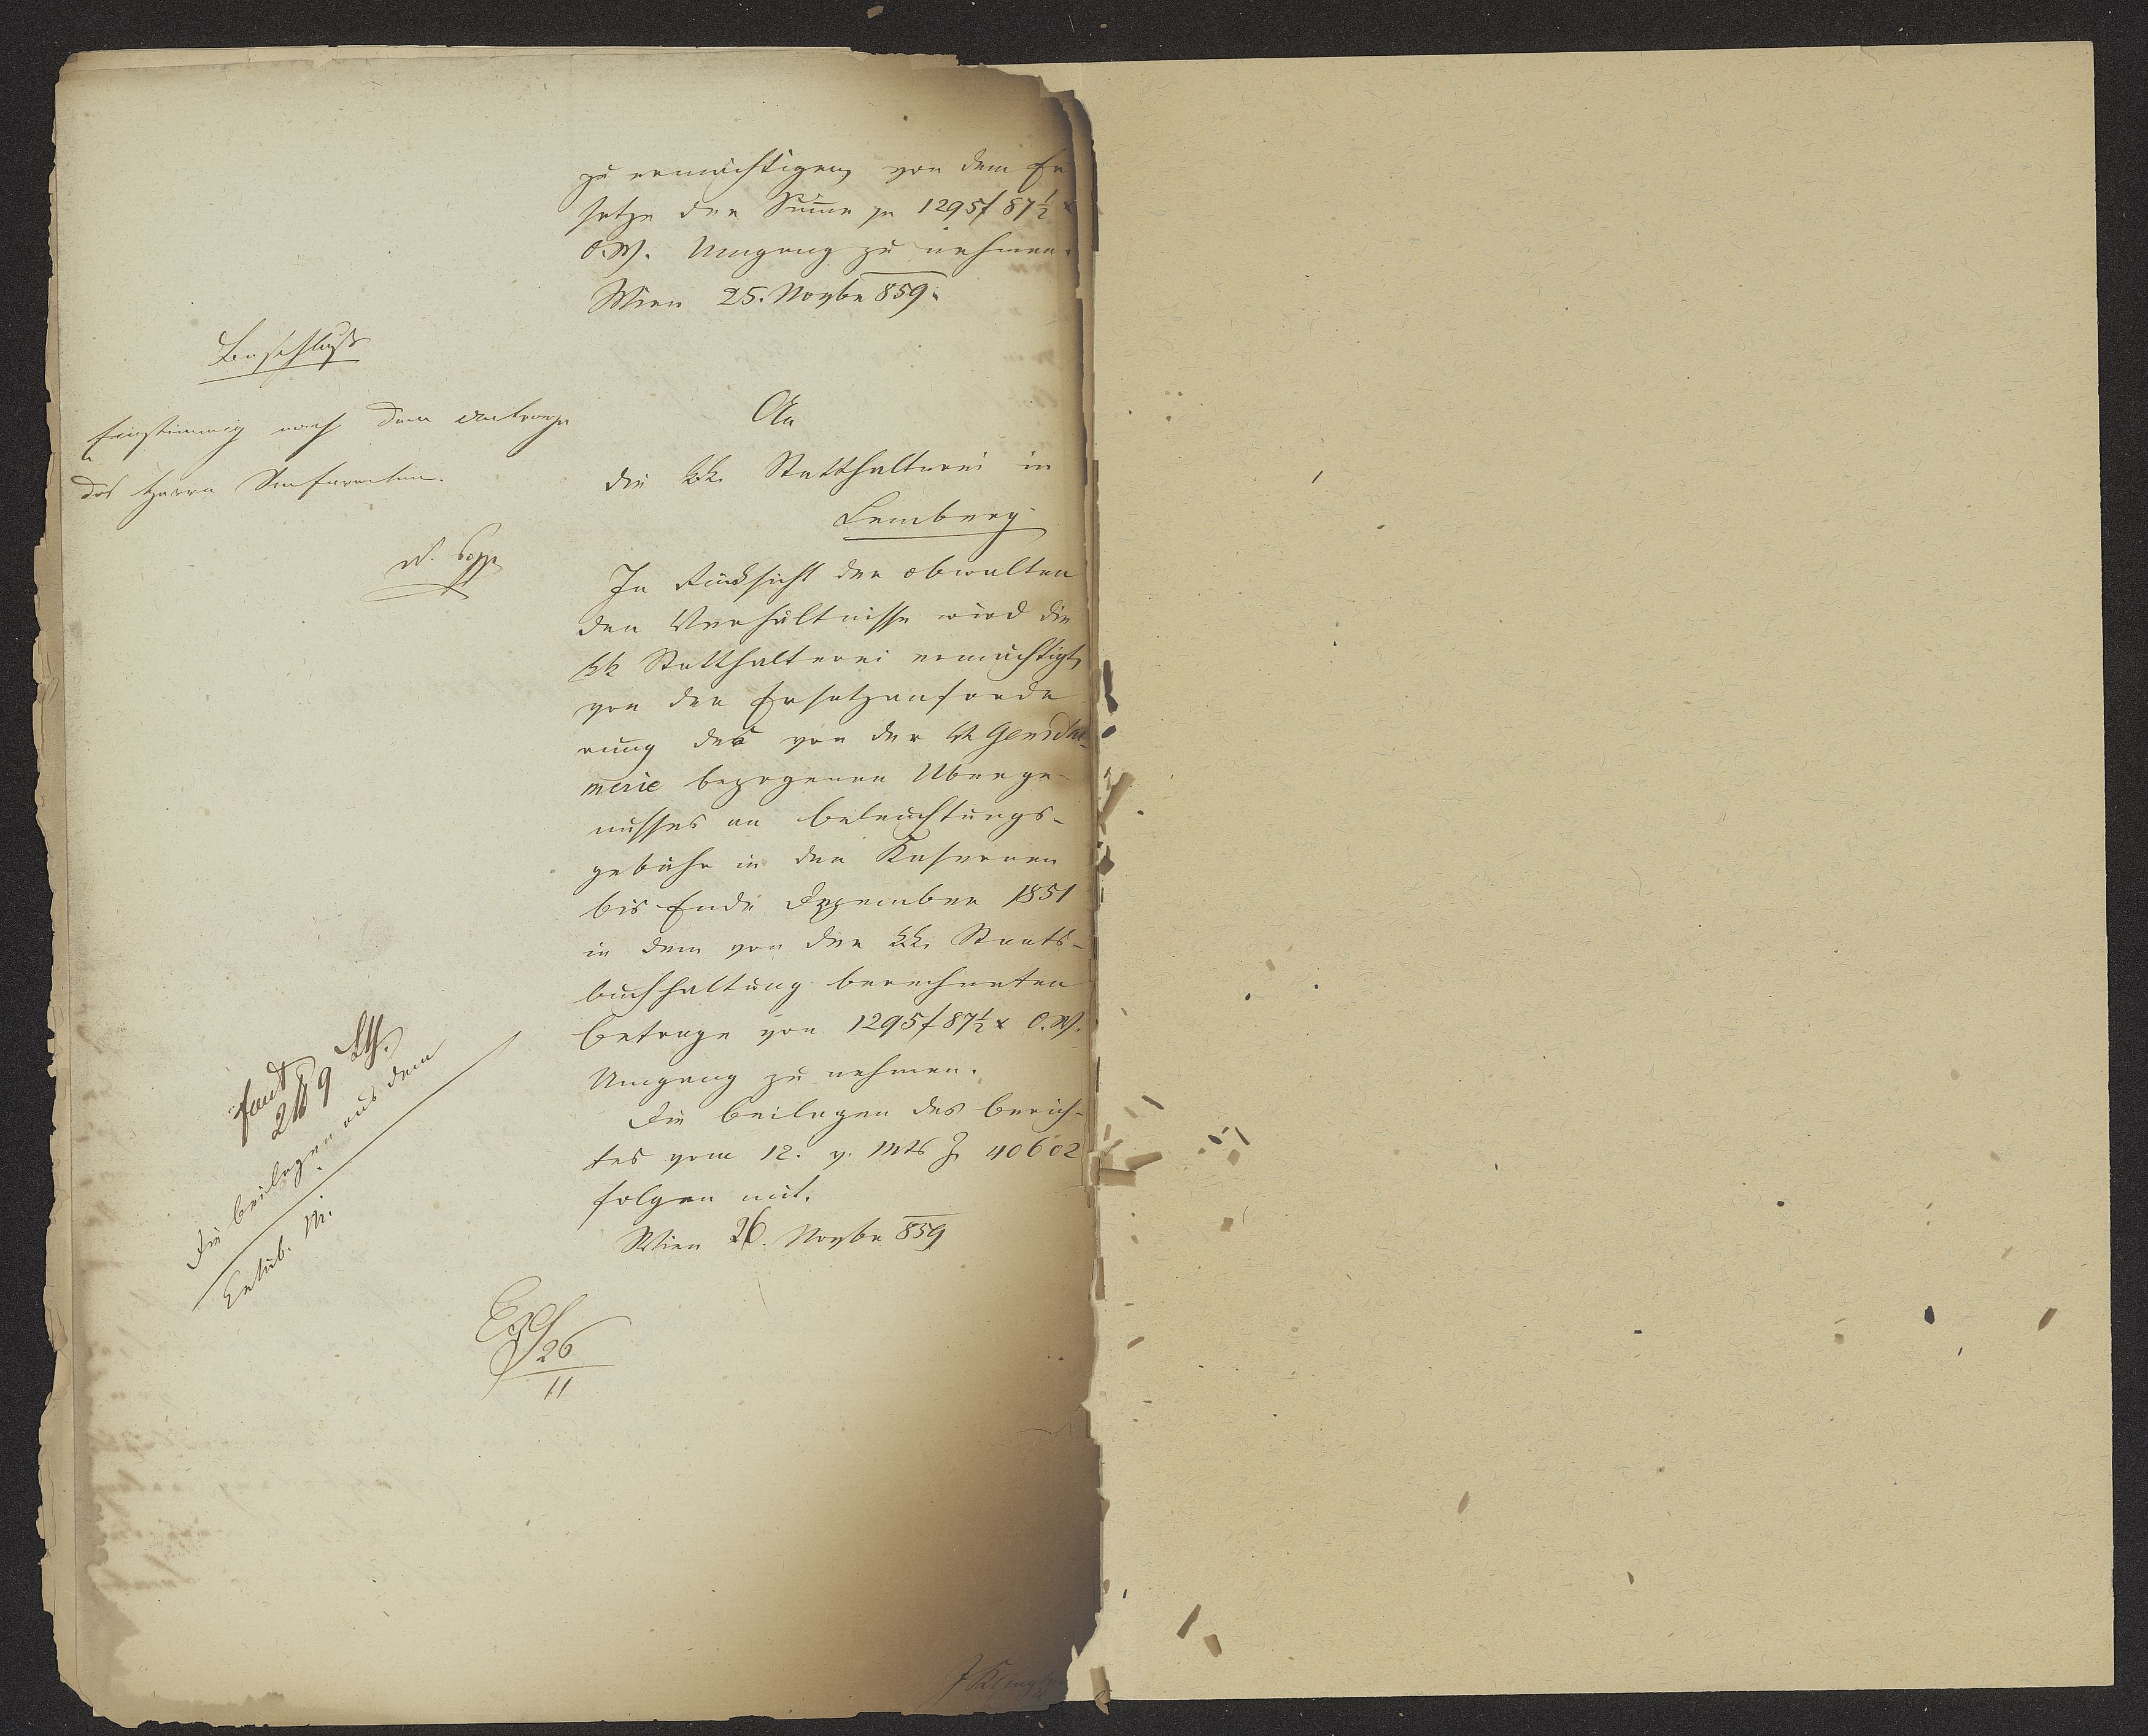 zu ermächtigen, von dem Er
satze der Suṁe pr 1295 f 87 ½ x
O.W. Umgang zu nehmen.
Wien 25. Novbr 859.
Beschluß
Einstimmig nach dem Antrage
des Herrn Referenten.
An
die kk. Statthalterei in
Lemberg
In Rücksicht der obwalten
den Verhältnisse wird die
kk Statthalterei ermächtigt,
von der Ersatzanforde
rung des von der kk Gendar-
merie bezogenen Überge-
nusses an Beleuchtungs-
gebühr in den Kasernen
bis Ende Dezember 1851
in dem von der kk. Staats-
buchhaltung berechneten
Betrage von 1295 f 87 ½ x O.W.
Umgang zu nehmen.
Die Beilagen des Berich-
tes vom 12. v. Mts Z 40602
folgen mit.
Wien 26. Novbr 859
2 ℔ 9 Lth.
Die Beilagen aus dem
Exhib. Nr.
26
11